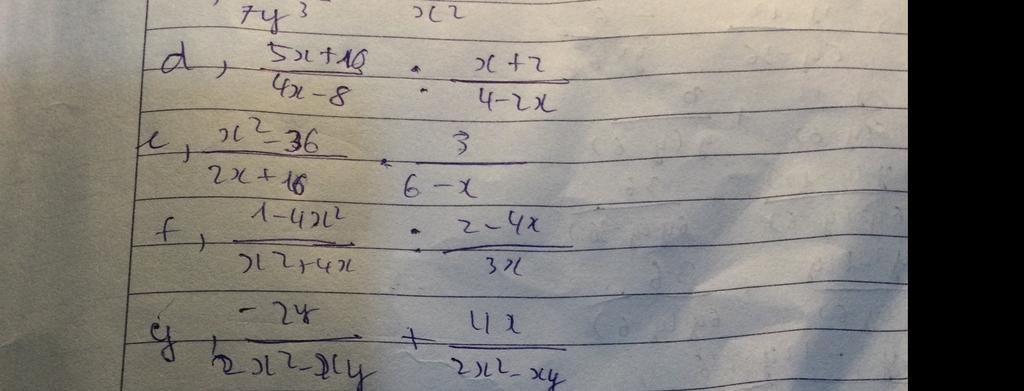 , 7y³ x²
d, (5x+10)/(4x-8) : (x+2)/(4-2x)
e, (x²-36)/(2x+10) . 3/(6-x)
f, (1-4x²)/(x²+4x) : (2-4x)/(3x)
g, (-2y)/(2x²-xy) + (4x)/(2x²-xy)